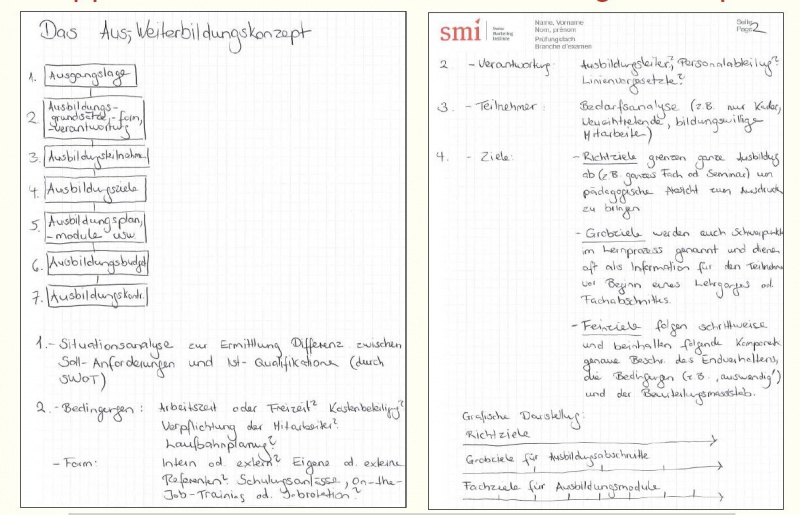 Das Aus-, Weiterbildungskonzept
1. Ausgangslage
2. Ausbildungs-
grundsätze, -form,
-verantwortung
3. Ausbildungsteilnehm.
4. Ausbildungsziele
5. Ausbildungsplan,
-module usw
6. Ausbildungsbudget
7. Ausbildungskontr.
1. - Situationsanalyse zur Ermittlung Differenz zwischen
Soll-Anforderungen und Ist-Qualifikationen (durch
SWOT)
2. - Bedingungen: Arbeitszeit oder Freizeit? Kostenbeteiligung?
Verpflichtung der Mitarbeiter?
Laufbahnplanung?
- Form: Intern od. extern? Eigene od. externe
Referenten? Schulungsanlässe, On-the-
Job-Training od. Jobrotation?
smi Swiss Marketing Institute
Name, Vorname
Nom, prénom
Prüfungsfach
Branche d'examen
Seite
Page 2
2. - Verantwortung: Ausbildungsleiter? Personalabteilung?
Linienvorgesetzte?
3. - Teilnehmer: Bedarfsanalyse (z.B. nur Kader,
Neueintretende, bildungswillige
Mitarbeiter)
4. - Ziele: - Richtziele grenzen ganze Ausbildung
ab (z.B. ganzes Fach od Seminar) um
pädagogische Absicht zum Ausdruck
zu bringen
- Grobziele werden auch Schwerpunkte
im Lernprozess genannt und dienen
oft als Information für den Teilnehmer
vor Beginn eines Lehrganges od.
Fachabschnittes.
- Feinziele folgen schrittweise
und beinhalten folgende Komponenten:
genaue Beschr. des Endverhaltens,
die Bedingungen (z.B. "auswendig")
und der Beurteilungsmassstab.
Grafische Darstellung:
Richtziele
Grobziele für Ausbildungsabschnitte
Fachziele für Ausbildungsmodule